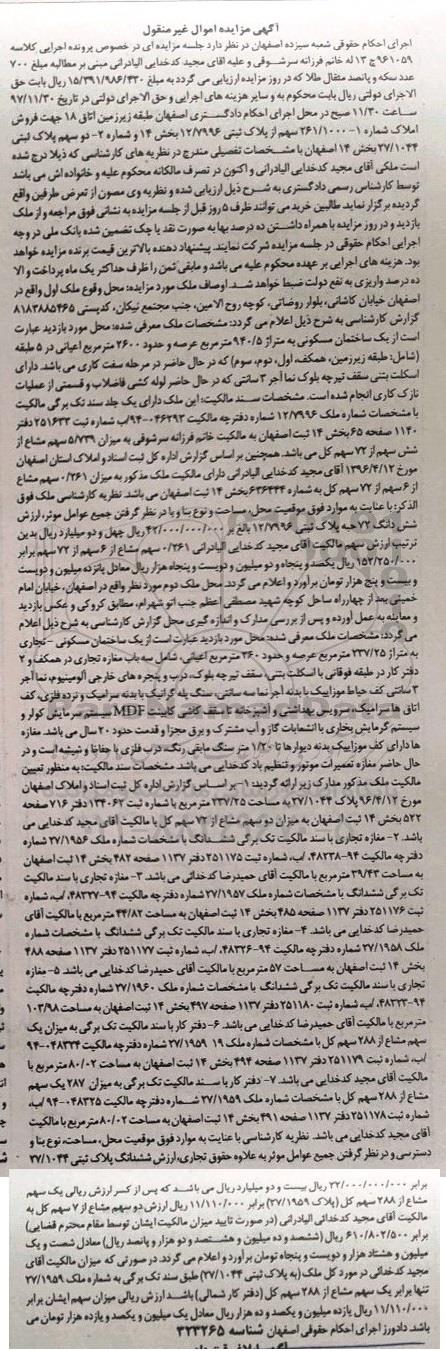 آگهی مزایده اموال غیر منقول
اجرای احکام حقوقی شعبه سیزده اصفهان در نظر دارد جلسه مزایده ای در خصوص پرونده اجرایی کلاسه
۹۶۱۰۵۹ ج ۱۳ له خانم فرزانه سرشوقی و علیه آقای مجید کدخدایی الیادرانی مبنی بر مطالبه مبلغ ۷۰۰
عدد سکه و پانصد مثقال طلا که در روز مزایده ارزیابی می گردد به مبلغ ۱۵/۳۹۱/۹۸۶/۴۳۰ ریال بابت حق
الاجرای دولتی ریال بابت محکوم به و سایر هزینه های اجرایی و حق الاجرای دولتی در تاریخ ۹۷/۱۱/۳۰
ساعت ۱۱/۳۰ صبح در محل اجرای احکام دادگستری اصفهان طبقه زیرزمین اتاق ۱۸ جهت فروش
املاک شماره ۱- ۲۶۱/۱۰۰۰ سهم از پلاک ثبتی ۱۲/۷۹۹۶ بخش ۱۴ و شماره ۲- دو سهم پلاک ثبتی
۲۷/۱۰۴۴ بخش ۱۴ اصفهان با مشخصات تفصیلی مندرج در نظریه های کارشناسی که ذیلا درج شده
است ملکی آقای مجید کدخدایی الیادرانی و اکنون در تصرف مالکانه محکوم علیه و خانواده اش می باشد
توسط کارشناس رسمی دادگستری به شرح ذیل ارزیابی شده و نظریه وی مصون از تعرض طرفین واقع
گردیده برگزار نماید طالبین خرید می توانند ظرف ۵ روز قبل از جلسه مزایده به نشانی فوق مراجعه و از ملک
بازدید و در روز مزایده با همراه داشتن ده درصد بها به صورت نقد یا چک تضمین شده بانک ملی در وجه
اجرایی احکام حقوقی در جلسه مزایده شرکت نمایند. پیشنهاد دهنده بالاترین قیمت برنده مزایده خواهد
بود. هزینه های اجرایی بر عهده محکوم علیه می باشد و مابقی ثمن را ظرف حداکثر یک ماه پرداخت و الا
ده درصد واریزی به نفع دولت ضبط خواهد شد. اوصاف ملک مورد مزایده: محل وقوع ملک اول واقع در
اصفهان خیابان کاشانی، بلوار روضاتی، کوچه روح الامین، جنب مجتمع نیکان، کدپستی ۸۱۸۳۸۸۵۴۶۵
گزارش کارشناسی به شرح ذیل اعلام می گردد: مشخصات ملک معرفی شده: محل مورد بازدید عبارت
است از یک ساختمان مسکونی به متراژ ۹۴۰/۵ مترمربع عرصه و حدود ۲۶۰۰ مترمربع اعیانی در ۵ طبقه
(شامل: طبقه زیرزمین، همکف، اول، دوم، سوم) که در حال حاضر در مرحله سفت کاری می باشد. دارای
اسکلت بتنی سقف تیرچه بلوک نما آجر ۳ سانتی که در حال حاضر لوله کشی فاضلاب و قسمتی از عملیات
نازک کاری انجام شده است. مشخصات سند مالکیت: این ملک دارای یک جلد سند تک برگی مالکیت
با مشخصات شماره ملک ۱۲/۷۹۹۶ شماره دفترچه مالکیت ۰۴۶۲۹۳-۹۴/ب شماره ثبت ۲۵۱۶۳۳ دفتر
۱۱۴۰ صفحه ۶۵ بخش ۱۴ ثبت اصفهان به مالکیت خانم فرزانه سرشوقی به میزان ۵/۷۳۹ سهم مشاع از
شش سهم از ۷۲ سهم کل می باشد. همچنین بر اساس گزارش اداره کل ثبت اسناد و املاک استان اصفهان
مورخ ۱۳۹۶/۴/۱۲ آقای مجید کدخدایی الیادرانی دارای مالکیت ملک مذکور به میزان ۰/۲۶۱ سهم مشاع
از ۶ سهم از ۷۲ سهم کل به شماره ۶۳۶۴۳۴ بخش ۱۴ ثبت اصفهان می باشد. نظریه کارشناسی ملک فوق
الذکر: با عنایت به موارد فوق موقعیت محل، مساحت و نوع بنا و با در نظر گرفتن جمیع عوامل موثر، ارزش
شش دانگ ۷۲ حبه پلاک ثبتی ۱۲/۷۹۹۶ بالغ بر ۴۲/۰۰۰/۰۰۰/۰۰۰ ریال چهل و دو میلیارد ریال بدین
ترتیب ارزش سهم مالکیت آقای مجید کدخدایی الیادرانی ۰/۲۶۱ سهم مشاع از ۶ سهم از ۷۲ سهم برابر
۱۵۲/۲۵۰/۰۰۰ ریال یکصد و پنجاه و دو میلیون و دویست و پنجاه هزار ریال معادل پانزده میلیون و دویست
و بیست و پنج هزار تومان برآورد و اعلام می گردد. محل ملک دوم مورد نظر واقع در اصفهان، خیابان امام
خمینی بعد از چهارراه ساحل کوچه شهید مصطفی اعظم جنب اتو شهرام، مطابق کروکی و عکس بازدید
و معاینه به عمل آورده و پس از بررسی مدارک و اندازه گیری محل گزارش کارشناسی به شرح ذیل اعلام
می گردد: مشخصات ملک معرفی شده: محل مورد بازدید عبارت است از یک ساختمان مسکونی - تجاری
به متراژ ۲۳۷/۲۵ مترمربع عرصه و حدود ۳۶۰ مترمربع اعیانی، شامل سه باب مغازه تجاری در همکف و ۲
دفتر کار در طبقه فوقانی با اسکلت بتنی، سقف تیرچه بلوک، درب و پنجره های خارجی آلومینیوم، نما آجر
۳ سانتی کف حیاط موزاییک با بدنه آجر نما سه سانتی، سنگ پله گرانیت با بدنه سرامیک و نرده فلزی، کف
اتاق ها سرامیک، سرویس بهداشتی و آشپزخانه تا سقف کاشی کابینت MDF سیستم سرمایش کولر و
سیستم گرمایش بخاری با انشعابات گاز و آب مشترک و برق مجزا و قدمت حدود ۲۰ سال می باشد. مغازه
ها دارای کف موزاییک بدنه دیوارها تا ۱/۲۰ متر سنگ مابقی رنگ، درب فلزی با حفاظ و شیشه است و در
حال حاضر مغازه تعمیرات موتور و تنظیم باد کدخدایی می باشد. مشخصات سند مالکیت: به منظور تعیین
مالکیت ملک مذکور مدارک زیر ارائه گردید: ۱- بر اساس گزارش اداره کل ثبت اسناد و املاک اصفهان
مورخ ۹۶/۴/۱۲ پلاک ۲۷/۱۰۴۴ به مساحت ۲۳۷/۲۵ مترمربع با شماره ثبت ۱۳۴۰۶۲ دفتر ۷۱۶ صفحه
۵۲۲ بخش ۱۴ ثبت اصفهان به میزان دو سهم مشاع از ۷۲ سهم کل با مالکیت آقای مجید کدخدایی می
باشد. ۲- مغازه تجاری با سند مالکیت تک برگی ششدانگ با مشخصات شماره ملک ۲۷/۱۹۵۶ شماره
دفترچه مالکیت ۹۴-۴۸۲۳۸۰/ب، شماره ثبت ۲۵۱۱۷۵ دفتر ۱۱۳۷ صفحه ۴۸۲ بخش ۱۴ ثبت اصفهان
به مساحت ۳۹/۴۳ مترمربع با مالکیت آقای حمیدرضا کدخدائی می باشد. ۳- مغازه تجاری با سند مالکیت
تک برگی ششدانگ با مشخصات شماره ملک ۲۷/۱۹۵۷ شماره دفترچه مالکیت ۹۴-۴۸۳۲۷۰/ب، شماره
ثبت ۲۵۱۱۷۶ دفتر ۱۱۳۷ صفحه ۴۸۵ بخش ۱۴ ثبت اصفهان به مساحت ۴۴/۸۲ مترمربع با مالکیت آقای
حمیدرضا کدخدایی می باشد. ۴- مغازه تجاری با سند مالکیت تک برگی ششدانگ با مشخصات شماره
ملک ۲۷/۱۹۵۸ شماره دفترچه مالکیت ۹۴-۴۸۳۲۶۰/ب، شماره ثبت ۲۵۱۱۷۷ دفتر ۱۱۳۷ صفحه ۴۸۸
بخش ۱۴ ثبت اصفهان به مساحت ۵۷ مترمربع با مالکیت آقای حمیدرضا کدخدایی می باشد. ۵- مغازه
تجاری با سند مالکیت تک برگی ششدانگ با مشخصات شماره ملک ۲۷/۱۹۶۰ شماره دفترچه مالکیت
۹۴-۴۸۳۲۳۰/ب، شماره ثبت ۲۵۱۱۸۰ دفتر ۱۱۳۷ صفحه ۴۹۷ بخش ۱۴ ثبت اصفهان به مساحت ۱۰۳/۹۸
مترمربع با مالکیت آقای حمیدرضا کدخدایی می باشد. ۶- دفتر کار با سند مالکیت تک برگی به میزان یک
سهم مشاع از ۲۸۸ سهم کل با مشخصات شماره ملک ۲۷/۱۹۵۹ شماره دفترچه مالکیت ۰۴۸۳۳۴-۹۴
/ب، شماره ثبت ۲۵۱۱۷۹ دفتر ۱۱۳۷ صفحه ۴۹۴ بخش ۱۴ ثبت اصفهان به مساحت ۸۰/۰۲ مترمربع با
مالکیت آقای مجید کدخدایی می باشد. ۷- دفتر کار با سند مالکیت تک برگی به میزان ۲۸۷ یک سهم
مشاع از ۲۸۸ سهم کل با مشخصات شماره ملک ۲۷/۱۹۵۹ شماره دفترچه مالکیت ۰۴۸۳۲۵-۹۴/ب،
شماره ثبت ۲۵۱۱۷۸ دفتر ۱۱۳۷ صفحه ۴۹۱ بخش ۱۴ ثبت اصفهان به مساحت ۸۰/۰۲ مترمربع با مالکیت
آقای مجید کدخدایی می باشد. نظریه کارشناسی با عنایت به موارد فوق موقعیت محل، مساحت، نوع بنا و
دسترسی و در نظر گرفتن جمیع عوامل موثر به علاوه حقوق تجاری، ارزش ششدانگ پلاک ثبتی ۲۷/۱۰۴۴
برابر ۲۲/۰۰۰/۰۰۰/۰۰۰ ریال بیست و دو میلیارد ریال می باشد که پس از کسر ارزش ریالی یک سهم
مشاع از ۲۸۸ سهم کل (پلاک ۲۷/۱۹۵۹) برابر ۱۱/۱۱۰/۰۰۰ ریال ارزش دو سهم مشاع از ۷ سهم کل به
مالکیت آقای مجید کدخدائی الیادرانی (در صورت تایید میزان مالکیت ایشان توسط مقام محترم قضایی)
برابر ۶۱۰/۸۰۲/۵۰۰ ریال (ششصد و ده میلیون و هشتصد و دو هزار و پانصد ریال) معادل شصت و یک
میلیون و هشتاد هزار و دویست و پنجاه تومان برآورد و اعلام می گردد. در صورتی که میزان مالکیت آقای
مجید کدخدائی در مورد کل ملک (به پلاک ثبتی ۲۷/۱۰۴۴) طبق سند تک برگی به شماره ملک ۲۷/۱۹۵۹
تنها برابر یک سهم مشاع از ۲۸۸ سهم کل (دفتر کار شمالی) باشد ارزش ریالی میزان سهم ایشان برابر
۱۱/۱۱۰/۰۰۰ ریال یازده میلیون و یکصد و ده هزار ریال معادل یک میلیون و یکصد و یازده هزار تومان می
باشد. دادورز اجرای احکام حقوقی اصفهان شناسه ۳۲۳۲۶۵